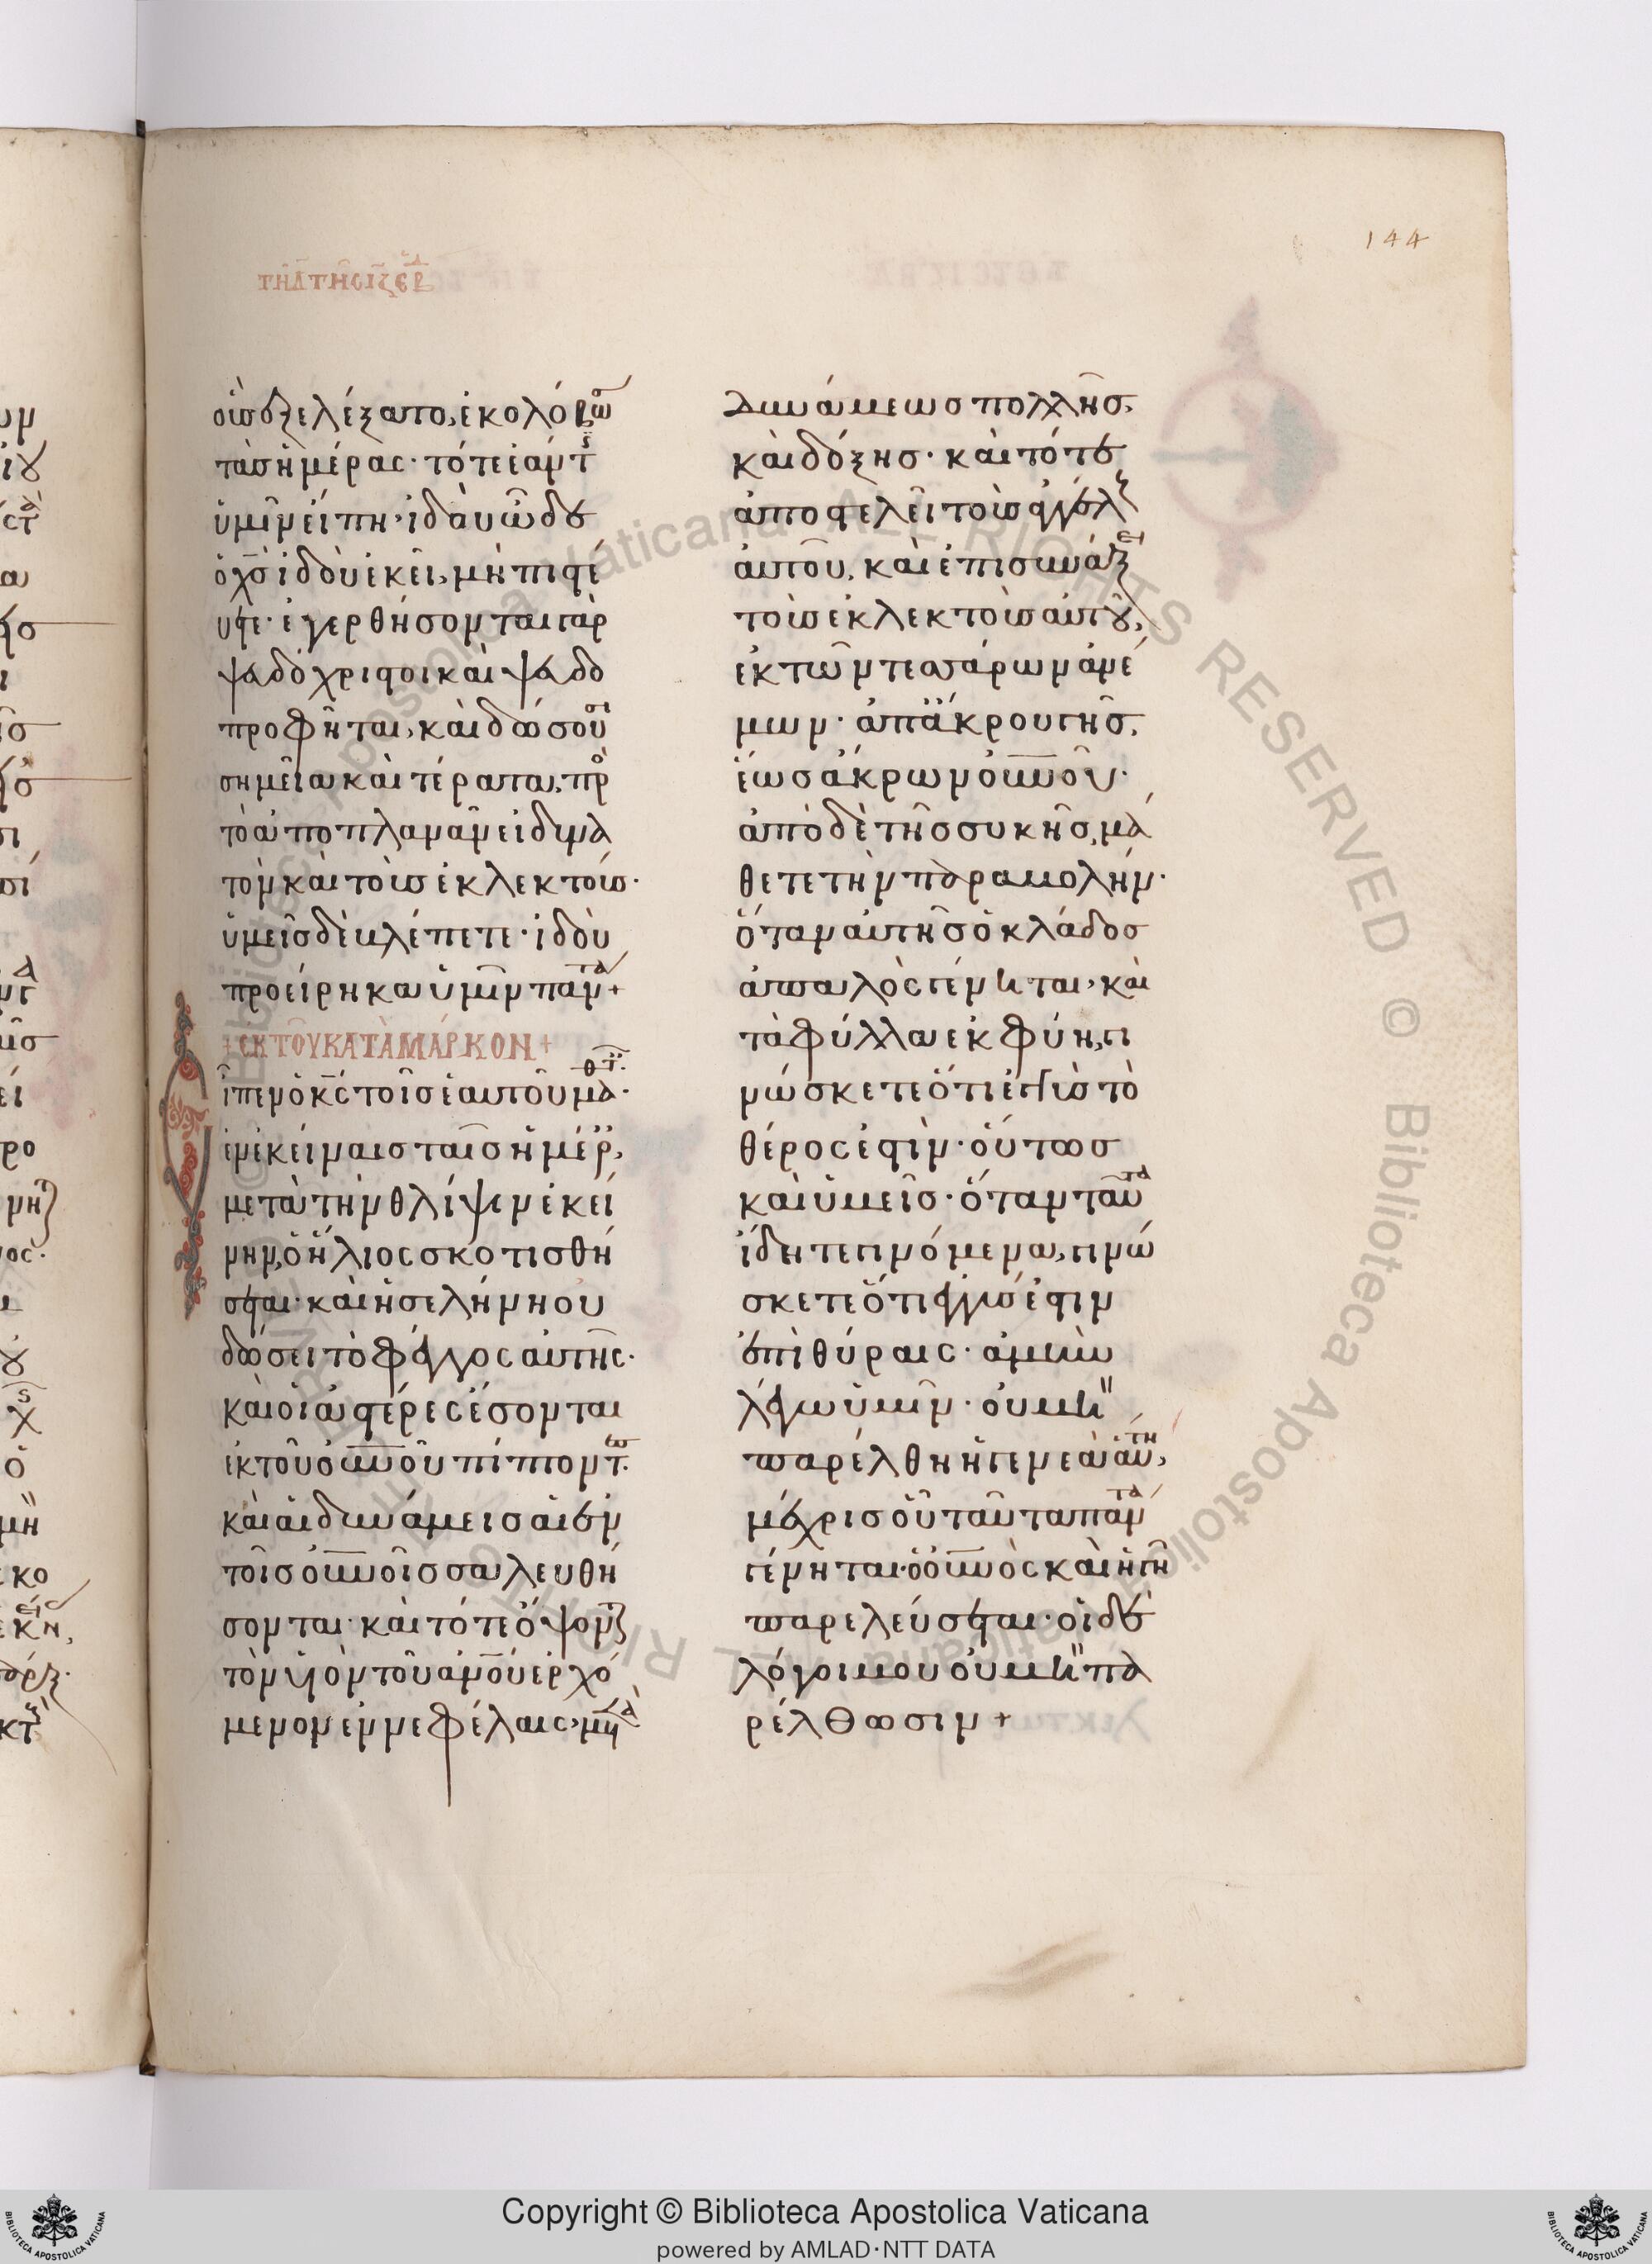 144
τῆ δ τῆς ιζ ἑβδ
οὓς ἐξελέξατο, ἐκολόβω
τὰς ἡμέρας· τότε ἐάν τ
ὑμῖν εἴπη· ἰδοὺ ὧδε
ὁ χς ἰδοὺ ἐκεῖ, μὴ πιστεύ
υσητε· ἐγερθήσονται γὰρ
ψευδόχριστοι καὶ ψευδο
προφῆται, καὶ δώσουσι
σημεῖα καὶ τέρατα, πρ
τὸ ἀποπλανᾶν εἰ δυνα
τὸν καὶ τοὺς ἐκλεκτούς·
ὑμεῖς δὲ βλέπετε· ἰδοὺ
προείρηκα ὑμῖν πάντα +
+ ἐκ τοῦ κατὰ Μάρκον +
Εἶπεν ὁ κς τοῖς ἑαυτοῦ μαθητ·
ἐν ἐκείναις ταῖς ἡμέρ,
μετὰ τὴν θλίψιν ἐκεί
νην, ὁ ἥλιος σκοτισθή
σεται· καὶ ἡ σελήνη οὐ
δώσει τὸ φέγγος αὐτῆς·
καὶ οἱ ἀστέρες ἔσονται
ἐκ τοῦ οὐνοῦ πίπτοντ·
καὶ αἱ δυνάμεις αἱ ἐν
τοῖς οὐνοῖς σαλευθή
σονται· καὶ τότε ὄψονται
τὸν υἱὸν τοῦ ἀνου ἐρχό
μενον ἐν νεφέλαις, μετὰ
δυνάμεως πολλῆς,
καὶ δόξης· καὶ τότε
ἀποστελεῖ τοὺς ἀγγέλ
αὐτοῦ, καὶ ἐπισυνάξει
τοὺς ἐκλεκτοὺς αὐτοῦ,
ἐκ τῶν τεσσάρων ἀνέ
μων· ἀπ' ἄκρου γῆς,
ἕως ἄκρων οὐνοῦ·
ἀπὸ δὲ τῆς συκῆς, μά
θετε τὴν παραβολήν·
ὅταν αὐτῆς ὁ κλάδος
ἁπαλὸς γένηται, καὶ
τὰ φύλλα ἐκφύη, γι
νώσκετε ὅτι ἐγγὺς τὸ
θέρος ἐστίν· οὕτως
καὶ ὑμεῖς· ὅταν ταῦτα
ἴδητε γινόμενα, γινώ
σκετε ὅτι ἐγγύς ἐστιν
ἐπὶ θύραις· ἀμὴν
λέγω ὑμῖν· οὐ μὴ
παρέλθη ἡ γενεὰ αὕτη,
μέχρις οὗ ταῦτα πάντα
γένηται· ὁ οὐνὸς καὶ ἡ γῆ
παρελεύσεται· οἱ δὲ
λόγοι μου οὐ μὴ πα
ρέλθωσιν +
Copyright © Biblioteca Apostolica Vaticana
powered by AMLAD·NTT DATA